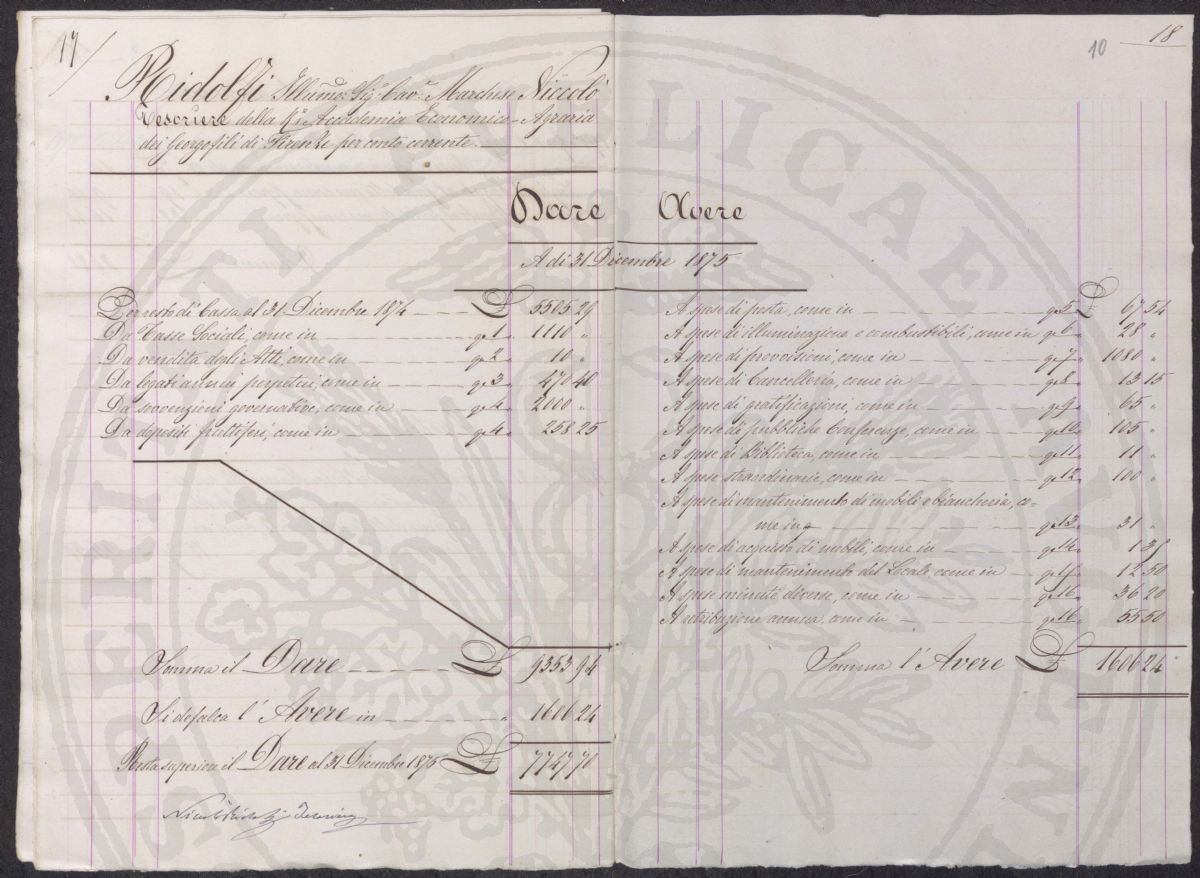 17
Ridolfi Illmo: Sigr. Cavr. Marchese Niccolò
Tesoriere della Rle. Accademia Economico-Agraria
dei Georgofili di Firenze per conto corrente.
Dare
A dì 31 Dicembre 1875
Per resto di Cassa al 31 Dicembre 1874 £ 5505 29
Da Tasse Sociali, come in qe 1 " 1110 "
Da vendita degli Atti, come in qe 2 " 10 "
Da legati annui perpetui, come in qe 3 " 470 40
Da sovvenzioni governative, come in qe 4 " 2000 "
Da depositi fruttiferi, come in qe 4 " 258 25
Somma il Dare £ 9353 94
Si defalca l'Avere in " 1606 24
Resta superiore il Dare al 31 Dicembre 1875 £ 7747 70
10
18
Avere
A spese di posta, come in qe 5 £ 67 54
A spese di illuminazione e combustibili, come in qe 6 " 28 "
A spese di provvisioni, come in qe 7 " 1080 "
A spese di Cancelleria, come in qe 8 " 13 15
A spese di gratificazioni, come in qe 9 " 65 "
A spese di pubbliche Conferenze, come in qe 10 " 105 "
A spese di Biblioteca, come in qe 11 " 11 "
A spese straordinarie, come in qe 12 " 100 "
A spese di mantenimento di mobili e biancheria, co-
me in qe 13 " 31 "
A spese di acquisto di mobili, come in qe 14 " 1 35
A spese di mantenimento del Locale, come in qe 15 " 12 50
A spese minute diverse, come in qe 16 " 36 20
A retribuzione annua, come in qe 16 " 55 50
Somma l'Avere £ 1606 24
SPERITATI PUBLICAE AUGEN